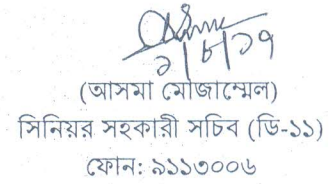 ১/৮/১৭
(আসমা মোজাম্মেল)
সিনিয়র সহকারী সচিব (ডি-১১)
ফোন: ৯১১৩০০৬